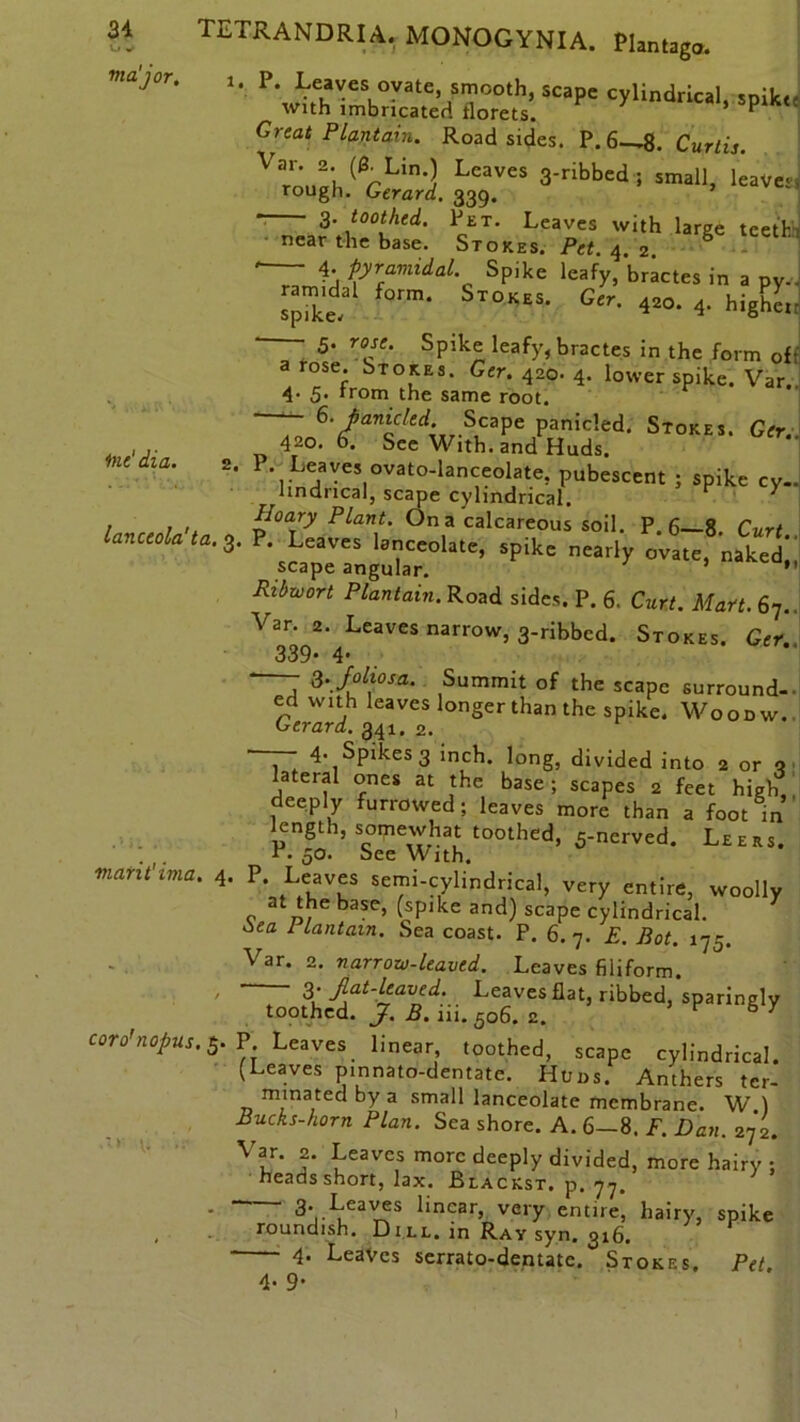 34 TETRANDRIA. MONOGYNIA. Plantago.
ma'jor. 1. P. Leaves ovate, smooth, scape cylindrical, spike
with imbricated florets.
Great Plantain. Road sides. P. 6—8. Curtis.
Var. 2. (β. Lin.) Leaves 3-ribbed; small, leaves
rough. Gerard. 339.
—— 3. toothed. PET. Leaves with large teeth
near the base. STOKES. Pet. 4. 2.
—— 4. pyramidal. Spike leafy, bractes in a py-
ramidal form. STOKES. Ger. 420. 4. higher
spike.
—— 5. rose. Spike leafy, bractes in the form of
a rose. STOKES. Ger. 420. 4. lower spike. Var.
4. 5. from the same root.
—— 6. panicled. Scape panicled. STOKES. Ger.
420. 6. See With. and Huds.
me'dia. 2. P. Leaves ovato-lanceolate, pubescent; spike cy-
lindrical, scape cylindrical.
Hoary Plant. On a calcareous soil. P. 6—8. Curt.
lanceola'ta. 3. P. Leaves lanceolate, spike nearly ovate, naked,
scape angular.
Ribwort Plantain. Road sides. P. 6. Curt. Mart. 67.
Var. 2. Leaves narrow, 3-ribbed. STOKES. Ger.
339. 4.
—— 3. foliosa. Summit of the scape surround-
ed with leaves longer than the spike. WOODW.
Gerard. 341. 2.
—— 4. Spikes 3 inch. long, divided into 2 or 3
lateral ones at the base; scapes 2 feet high,
deeply furrowed; leaves more than a foot in
length, somewhat toothed, 5-nerved. LEERS.
P. 50. See With.
marit'ima. 4. P. Leaves semi-cylindrical, very entire, woolly
at the base, (spike and) scape cylindrical.
Sea Plantain. Sea coast. P. 6. 7. E. Bot. 175.
Var. 2. narrow-leaved. Leaves filiform.
—— 3. flat-leaved. Leaves flat, ribbed, sparingly
toothed. J. B. iii. 506. 2.
coro'nopus. 5. P. Leaves linear, toothed, scape cylindrical.
(Leaves pinnato-dentate. HUDS. Anthers ter-
minated by a small lanceolate membrane. W.)
Bucks-horn Plan. Sea shore. A. 6—8. F. Dan. 272.
Var. 2. Leaves more deeply divided, more hairy;
heads short, lax. BLACKST. p. 77.
—— 3. Leaves linear, very entire, hairy, spike
roundish. DILL. in RAY syn. 316.
—— 4. Leaves serrato-dentate. STOKES. Pet.
4. 9.